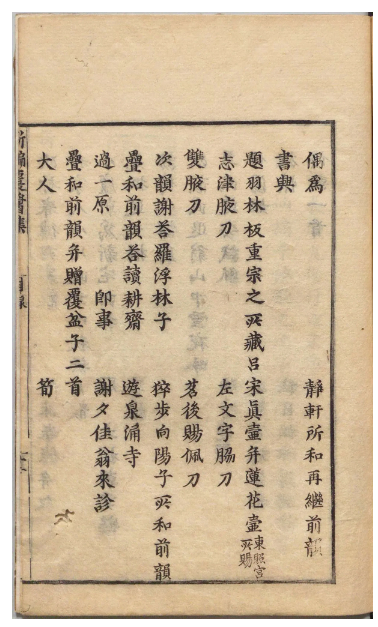 偶為　靜軒所和再繼前韻
書興
題羽林板重宗之所藏呂宋真壺并蓮花壺東照宮所賜
志津腋刀　左文字脇刀
雙腋刀　茗後賜佩刀
次韻謝荅羅浮林子　猝步向陽子所和前韻
疊和前韻荅讀耕齋　遊泉涌寺
過一原　即事　謝夕佳翁來診
疊和前韻并贈覆盆子二首
大人　筍
新編覆醬集　目錄